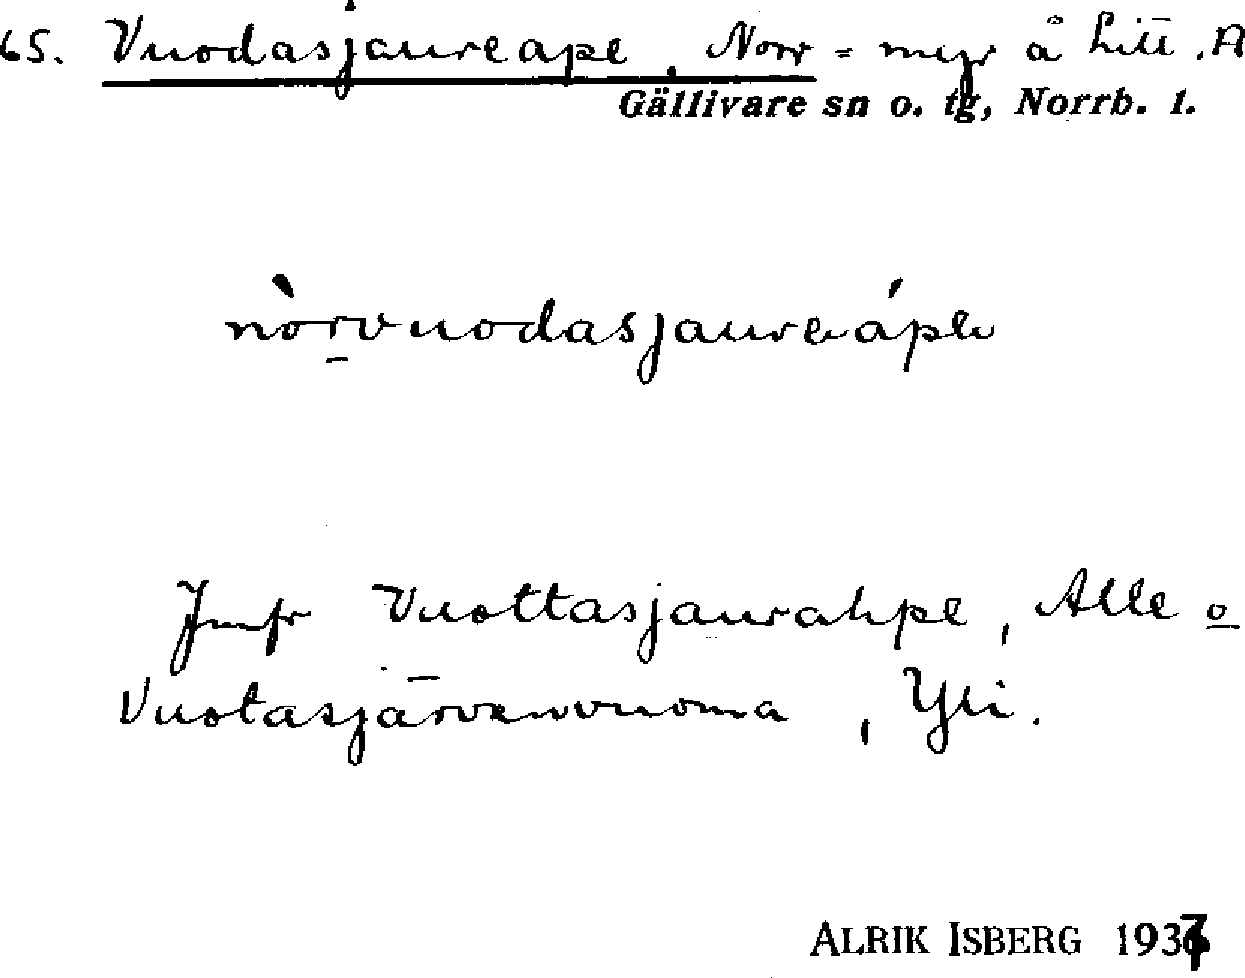 65. Vuodasjaureape, Norr = myr å hitt. A
Gällivare sn o. tg, Norrb. l.
nòrvuodasjaureápe
Jmfr Vuottasjaurahpe, Alle o
Vuotasjärvenvuoma, Yli.
ALRIK ISBERG 1937